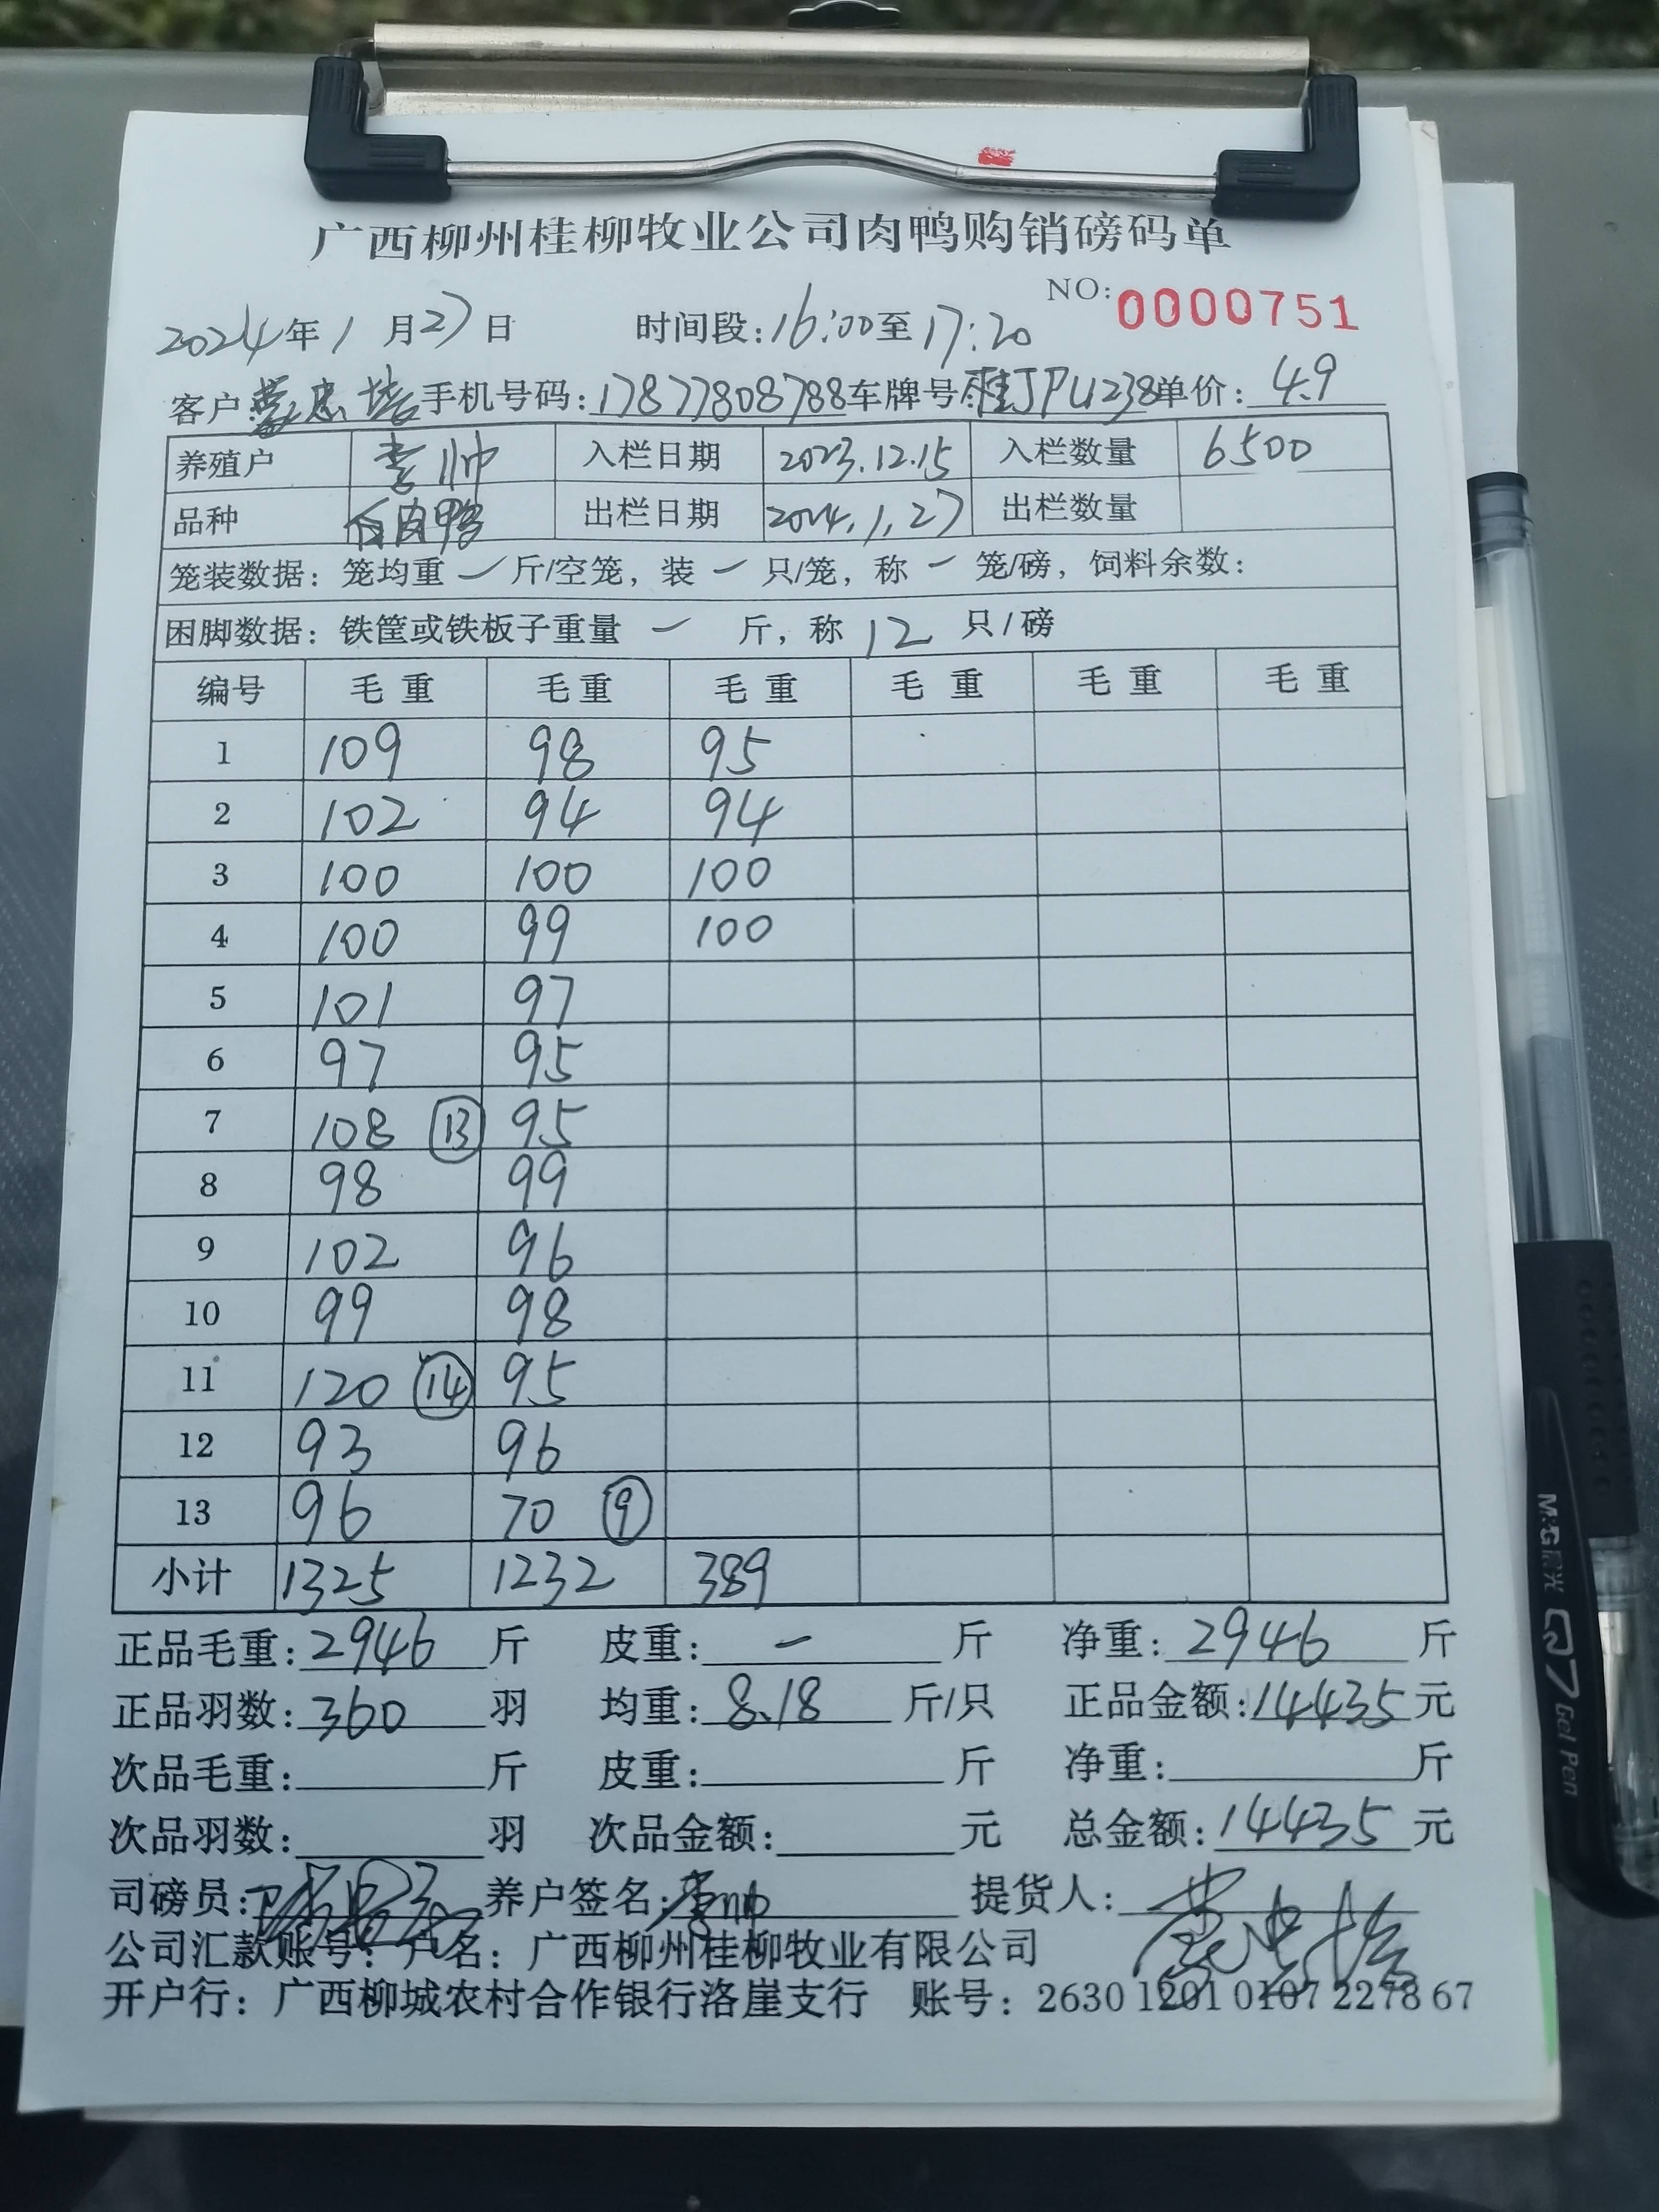 广西柳州桂柳牧业公司肉鸭购销磅码单
NO: 0000751
2024年1月27日 时间段:16:00至17:20
客户:蒙忠培 手机号码:17877808788 车牌号 桂JPU238 单价: 4.9
养殖户 李帅 入栏日期 2023.12.15 入栏数量 6500
品种 白肉鸭 出栏日期 2024.1.27 出栏数量
笼装数据: 笼均重 一 斤/空笼, 装 一 只/笼, 称 一 笼/磅, 饲料余数:
困脚数据: 铁筐或铁板子重量 一 斤, 称 12 只/磅
编号 毛重 毛重 毛重 毛重 毛重 毛重
1 109 98 95
2 102 94 94
3 100 100 100
4 100 99 100
5 101 97
6 97 95
7 108 ⑬ 95
8 98 99
9 102 96
10 99 98
11 120 ⑭ 95
12 93 96
13 96 70 ⑨
小计 1325 1232 389
正品毛重: 2946 斤 皮重: 一 斤 净重: 2946 斤
正品羽数: 360 羽 均重: 8.18 斤/只 正品金额: 14435 元
次品毛重: 斤 皮重: 斤 净重: 斤
次品羽数: 羽 次品金额: 元 总金额: 14435 元
司磅员: 养户签名: 李帅 提货人: 蒙忠培
公司汇款账号: 户名: 广西柳州桂柳牧业有限公司
开户行: 广西柳城农村合作银行洛崖支行 账号: 2630 1201 0107 2278 67
M&G 晨光 Q7 Gel Pen